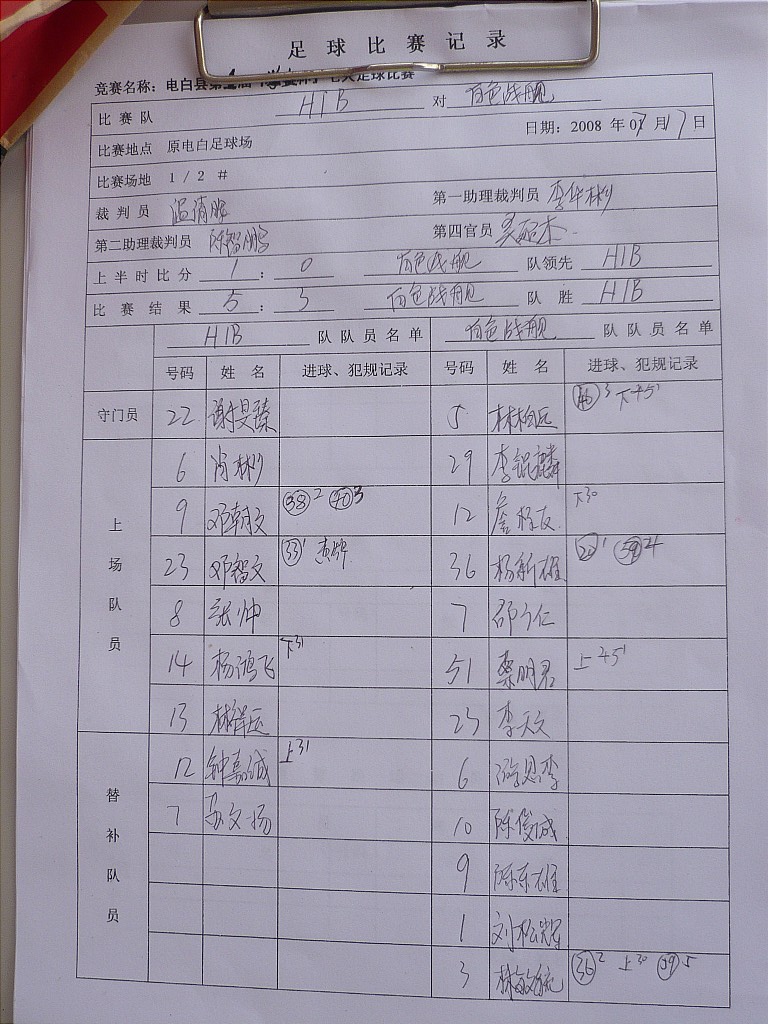 足球比赛记录
竞赛名称：电白县第 届 足球比赛
比赛队 HIB 对 百色战舰
日期：2008年07月17日
比赛地点 原电白足球场
比赛场地 1/2#
裁判员 第一助理裁判员 李华彬
第二助理裁判员 陈智鹏 第四官员
上半时比分 1：0 百色战舰 队领先 HIB
比赛结果 5：3 百色战舰 队胜 HIB
HIB 队队员名单 百色战舰 队队员名单
号码 姓名 进球、犯规记录 号码 姓名 进球、犯规记录
守门员 22 谢昊臻 5 林柏远 下45'
上场队员
6 肖彬 29 李锟麟
9 邓朝文 38 2 40 3 12 下30
23 邓智文 33 1 黄牌 36 杨新雄 22 1 39 24
8 张帅 7 邵广仁
14 杨鸿飞 下31 51 蔡明君 上45'
13 林祥运 23 李天文
替补队员
12 钟嘉诚 上31 6 游思李
7 苏文扬 10 陈俊成
9 陈东雄
1 刘松
3 林敏 36 2 上30 39 5